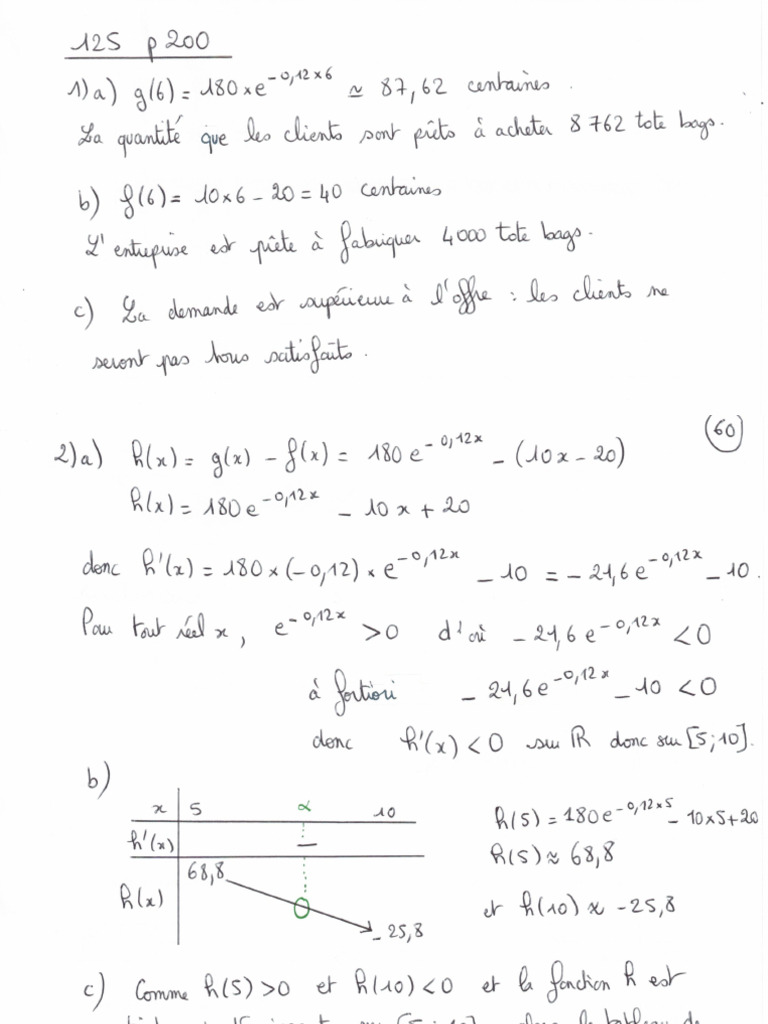 125 p 200
1) a) g(6) = 180 × e^{-0,12×6} ≃ 87,62 centaines.
La quantité que les clients sont prêts à acheter 8 762 tote bags.
b) f(6) = 10×6 - 20 = 40 centaines
L'entreprise est prête à fabriquer 4000 tote bags.
c) La demande est supérieure à l'offre : les clients ne
seront pas tous satisfaits.
60
2) a) h(x) = g(x) - f(x) = 180 e^{-0,12x} - (10x - 20)
h(x) = 180 e^{-0,12x} - 10x + 20
donc h'(x) = 180 × (-0,12) × e^{-0,12x} - 10 = -21,6 e^{-0,12x} - 10.
Pour tout réel x, e^{-0,12x} > 0 d'où -21,6 e^{-0,12x} < 0
à fortiori -21,6 e^{-0,12x} - 10 < 0
donc h'(x) < 0 sur ℝ donc sur [5;10].
b)
x 5 α 10
h'(x) -
h(x) 68,8 0 -25,8
h(5) = 180 e^{-0,12×5} - 10×5+20
h(5) ≈ 68,8
et h(10) ≈ -25,8
c) Comme h(5) > 0 et h(10) < 0 et la fonction h est